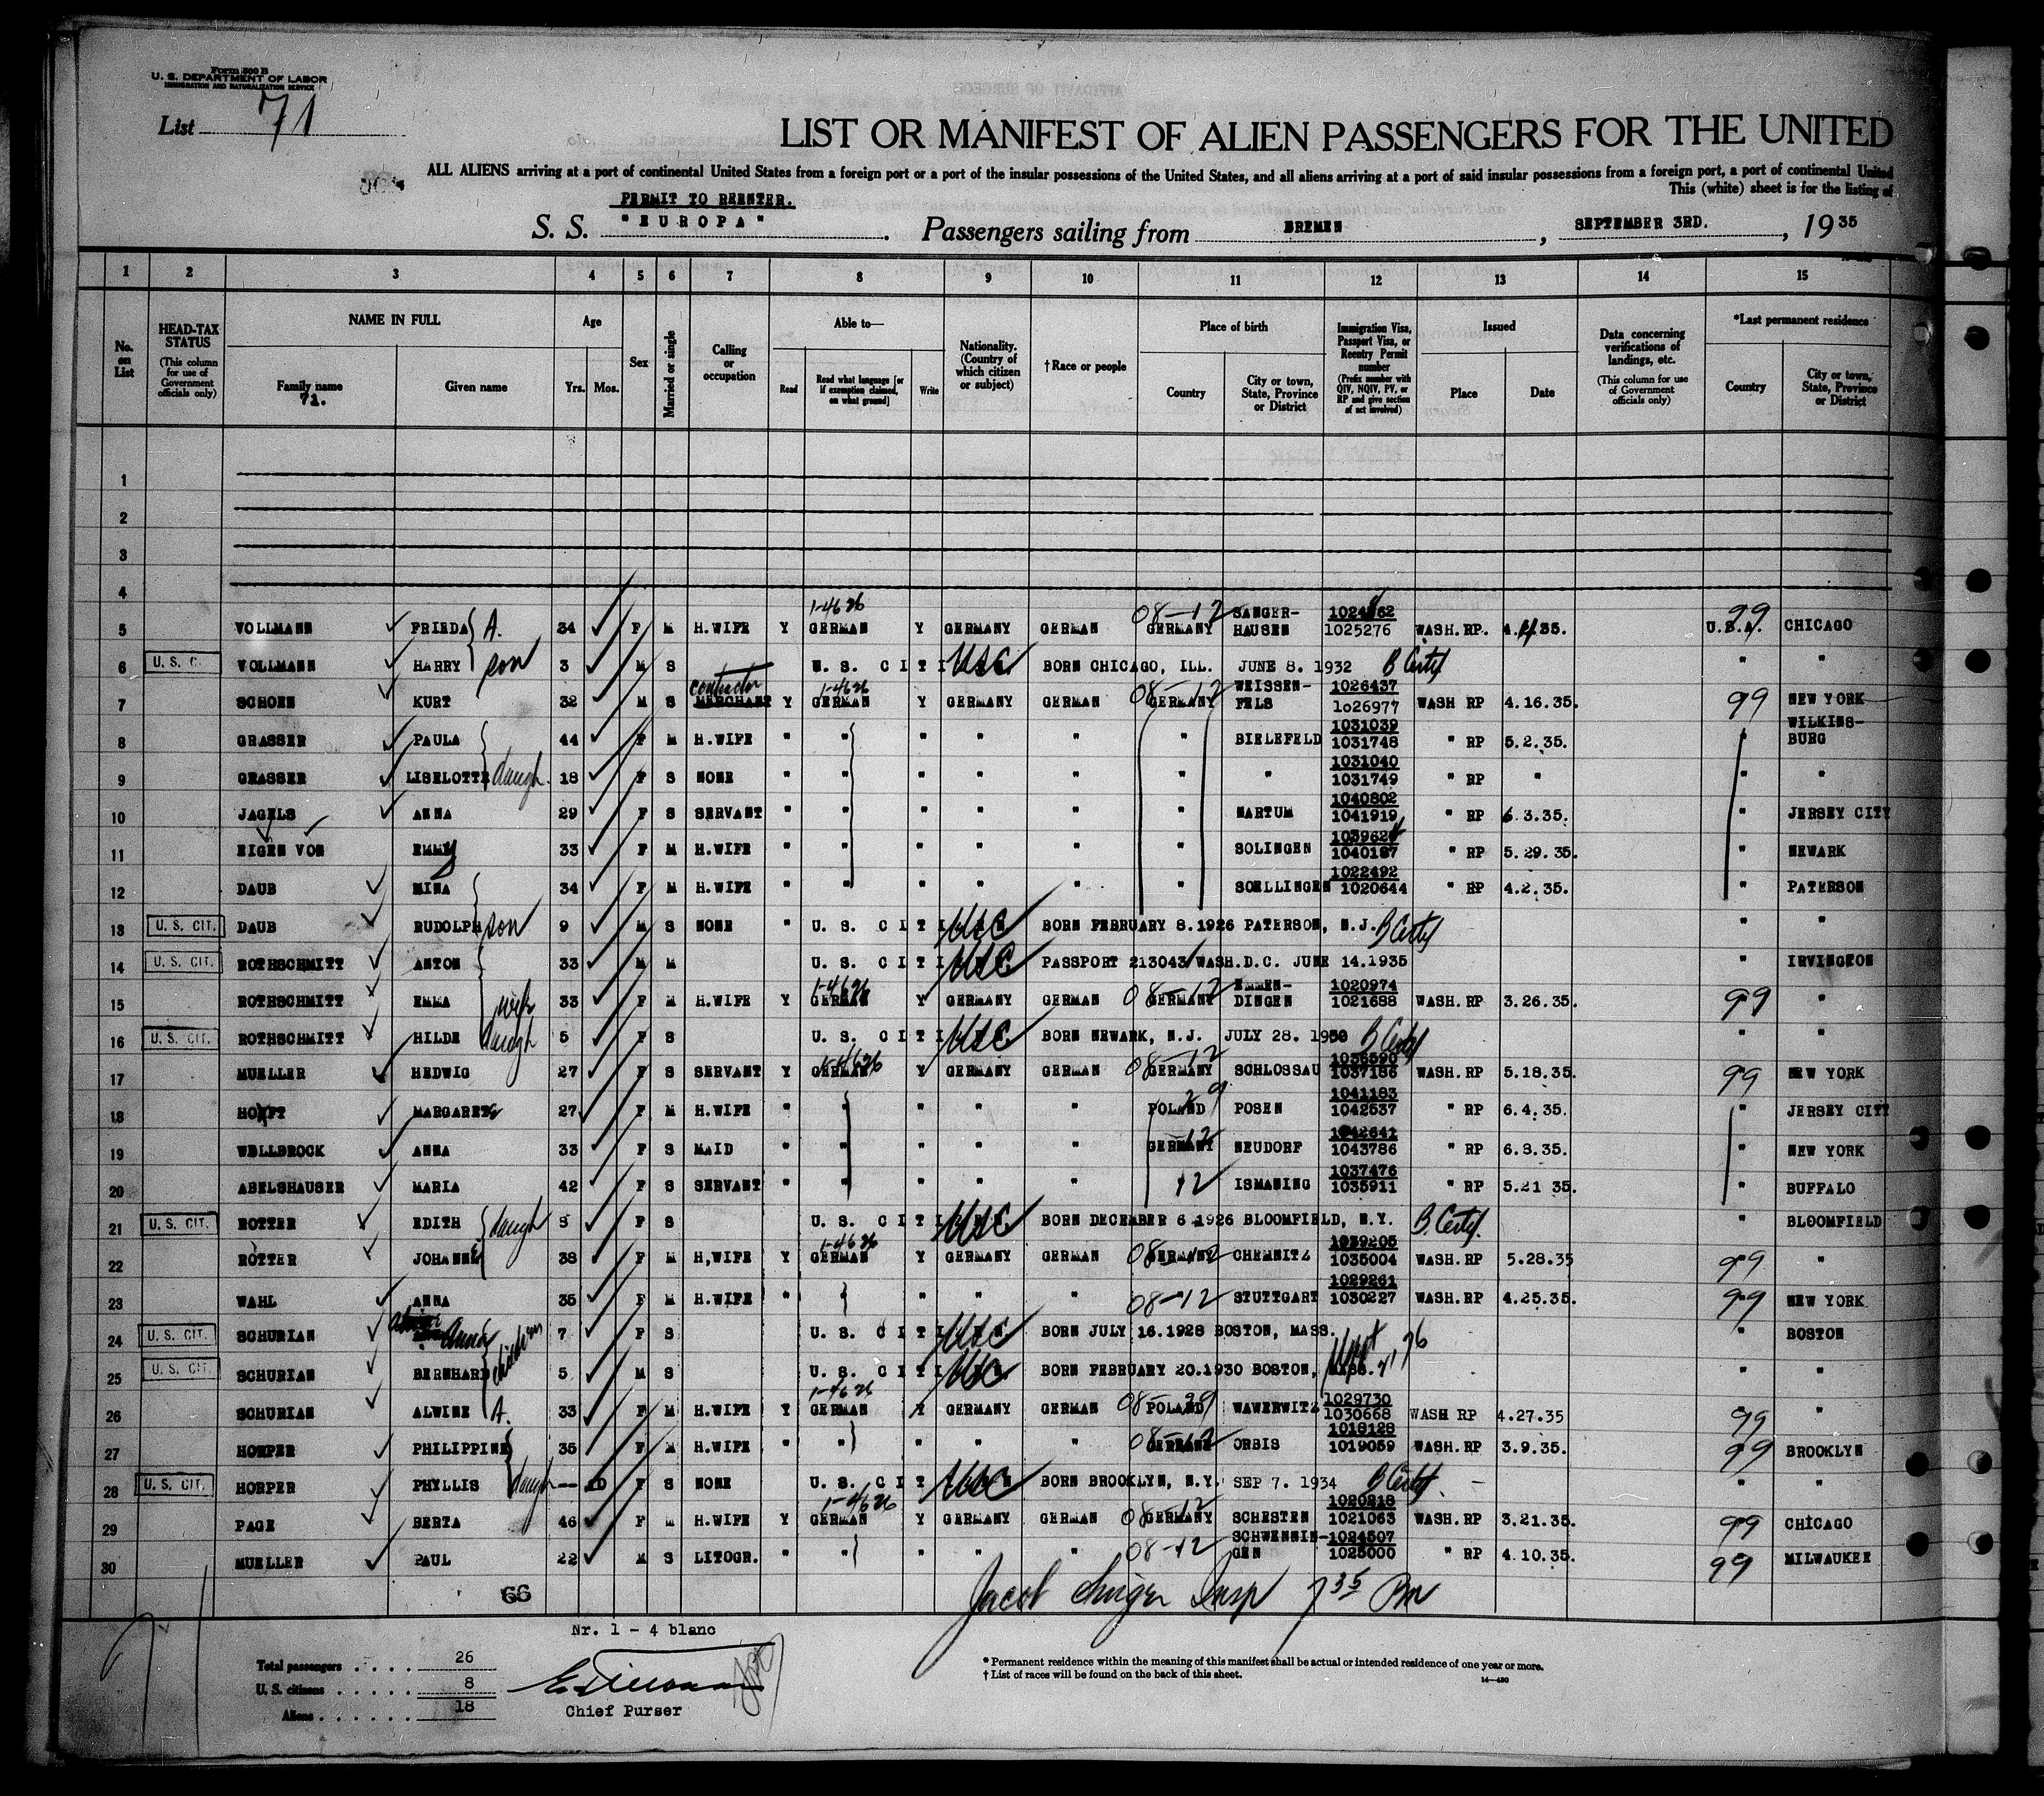 Form 500 B
U. S. DEPARTMENT OF LABOR
IMMIGRATION AND NATURALIZATION SERVICE
List 71
LIST OR MANIFEST OF ALIEN PASSENGERS FOR THE UNITED
ALL ALIENS arriving at a port of continental United States from a foreign port or a port of the insular possessions of the United States, and all aliens arriving at a port of said insular possessions from a foreign port, a port of continental United
This (white) sheet is for the listing of
PERMIT TO REENTER.
S. S. "EUROPA" . Passengers sailing from BREMEN , SEPTEMBER 3RD. , 19 35
1 2 3 4 5 6 7 8 9 10 11 12 13 14 15
No. on List
HEAD-TAX STATUS (This column for use of Government officials only)
NAME IN FULL
Family name 71. Given name
Age Yrs. Mos.
Sex
Married or single
Calling or occupation
Able to— Read Read what language [or if exemption claimed, on what ground] Write
Nationality. (Country of which citizen or subject)
†Race or people
Place of birth Country City or town, State, Province or District
Immigration Visa, Passport Visa, or Reentry Permit number (Prefix number with QIV, NQIV, PV, or RP and give section of act involved)
Issued Place Date
Data concerning verifications of landings, etc. (This column for use of Government officials only)
*Last permanent residence Country City or town, State, Province or District
1
2
3
4
5 VOLLMANN FRIEDA A. 34 F M H.WIFE Y 1-4626 GERMAN Y GERMANY GERMAN 08-12 GERMANY SANGER-HAUSEN 1025276 WASH. RP. 35. 99 U.S.A. CHICAGO
6 U. S. C VOLLMANN HARRY son 3 M S U. S. CITI USC BORN CHICAGO, ILL. JUNE 8. 1932 B Certf " "
7 SCHOEN KURT 32 M S contractor MERCHANT Y 1-4626 GERMAN Y GERMANY GERMAN 08-12 GERMANY WEISSEN-FELS 1026437 1o26977 WASH RP 4.16.35. 99 NEW YORK
8 GRASSER PAULA 44 F M H.WIFE " " " " " " BIELEFELD 1031039 1031748 " RP 5.2.35. " WILKINS-BURG
9 GRASSER LISELOTTE daugh. 18 F S NONE " " " " " " " 1031040 1031749 " RP " " "
10 JAGELS ANNA 29 F S SERVANT " " " " " " HARTUM 1040802 1041919 " RP 6.3.35. " JERSEY CITY
11 EIGEN VON EMMY 33 F M H.WIFE " " " " " " SOLINGEN 1040187 " RP 5.29.35. " NEWARK
12 DAUB MINA 34 F M H.WIFE " " " " " " SOELLINGEN 1022492 1020644 " RP 4.2.35. " PATERSON
13 U. S. CIT. DAUB RUDOLPH son 9 M S NONE " U. S. CITI USC BORN FEBRUARY 8.1926 PATERSON, N.J. B Certf " "
14 U. S. CIT. ROTHSCHMITT ANTON 33 M M U. S. CITI USC PASSPORT 213043 WASH.D.C. JUNE 14.1935 " IRVINGTON
15 ROTHSCHMITT EMMA wife 33 F M H.WIFE Y 1-4626 GERMAN Y GERMANY GERMAN 08-12 GERMANY EMMEN-DINGEN 1020974 1021688 WASH. RP 3.26.35. 99 "
16 U. S. CIT. ROTHSCHMITT HILDE daugh 5 F S U. S. CITI USC BORN NEWARK, N.J. JULY 28. 1930 B Certf " "
17 MUELLER HEDWIG 27 F S SERVANT Y 1-4626 GERMAN Y GERMANY GERMAN 08-12 GERMANY SCHLOSSAU 1036590 1037186 WASH. RP 5.18.35. 99 NEW YORK
18 MARGARETE 27 F M H.WIFE " " " " " POLAND 29 POSEN 1041183 1042537 " RP 6.4.35. " JERSEY CITY
19 WELLBROCK ANNA 33 F S MAID " " " " " GERMANY 12 NEUDORF 1042641 1043786 " RP 6.8.35. " NEW YORK
20 ABELSHAUSER MARIA 42 F S SERVANT " " " " " 12 ISMANING 1037476 1035911 " RP 5.21 35. " BUFFALO
21 U. S. CIT. ROTTER EDITH daugh F S U. S. CITI USC BORN DECEMBER 6.1926 BLOOMFIELD, N.Y. B. Certf. " BLOOMFIELD
22 ROTTER JOHANNE 38 F M H,WIFE Y 1-4626 GERMAN Y GERMANY GERMAN 08-12 GERMANY CHEMNITZ 1039205 1035004 WASH. RP 5.28.35 99 "
23 WAHL ANNA 35 F M H.WIFE " " " " " 08-12 " STUTTGART 1029261 1030227 WASH. RP 4.25.35. 99 NEW YORK
24 U. S. CIT. SCHURIAN Anna children 7 F S U. S. CITI USC BORN JULY 16.1928 BOSTON, MASS. " BOSTON
25 U. S. CIT. SCHURIAN BERNHARD 5 M S U. S. CITI USC BORN FEBRUARY 20.1930 BOSTON, MASS. " "
26 SCHURIAN ALWINE A. 33 F M H.WIFE Y 1-4626 GERMAN Y GERMANY GERMAN 08-29 POLAND WAWERWITZ 1029730 1030668 WASH RP 4.27.35 99 "
27 HORPER PHILIPPINE 35 F M H.WIFE " " " " " 08-12 GERMANY ORBIS 1018128 1019059 WASH. RP 3.9.35. 99 BROOKLYN
28 U. S. CIT. HORPER PHYLLIS daugh — 10 F S NONE U. S. CIT USC BORN BROOKLYN, N.Y. SEP 7. 1934 B Certf. — " "
29 PAGE BERTA 46 F M H.WIFE Y 1-4626 GERMAN Y GERMANY GERMAN 08-12 GERMANY SCHESTEN 1020218 1021063 WASH. RP 3.21.35. 99 CHICAGO
30 MUELLER PAUL 22 M S LITOGR. " " " " " 08-12 SCHWENNIN-GEN 1024507 1025000 " RP 4.10.35. 99 MILWAUKEE
66
Jacob Insp 7 35 Pm
Nr. 1 - 4 blanc
Total passengers . . . . 26
U. S. citizens . . . . . 8
Aliens . . . . . . 18
Chief Purser
* Permanent residence within the meaning of this manifest shall be actual or intended residence of one year or more.
† List of races will be found on the back of this sheet.
14—430